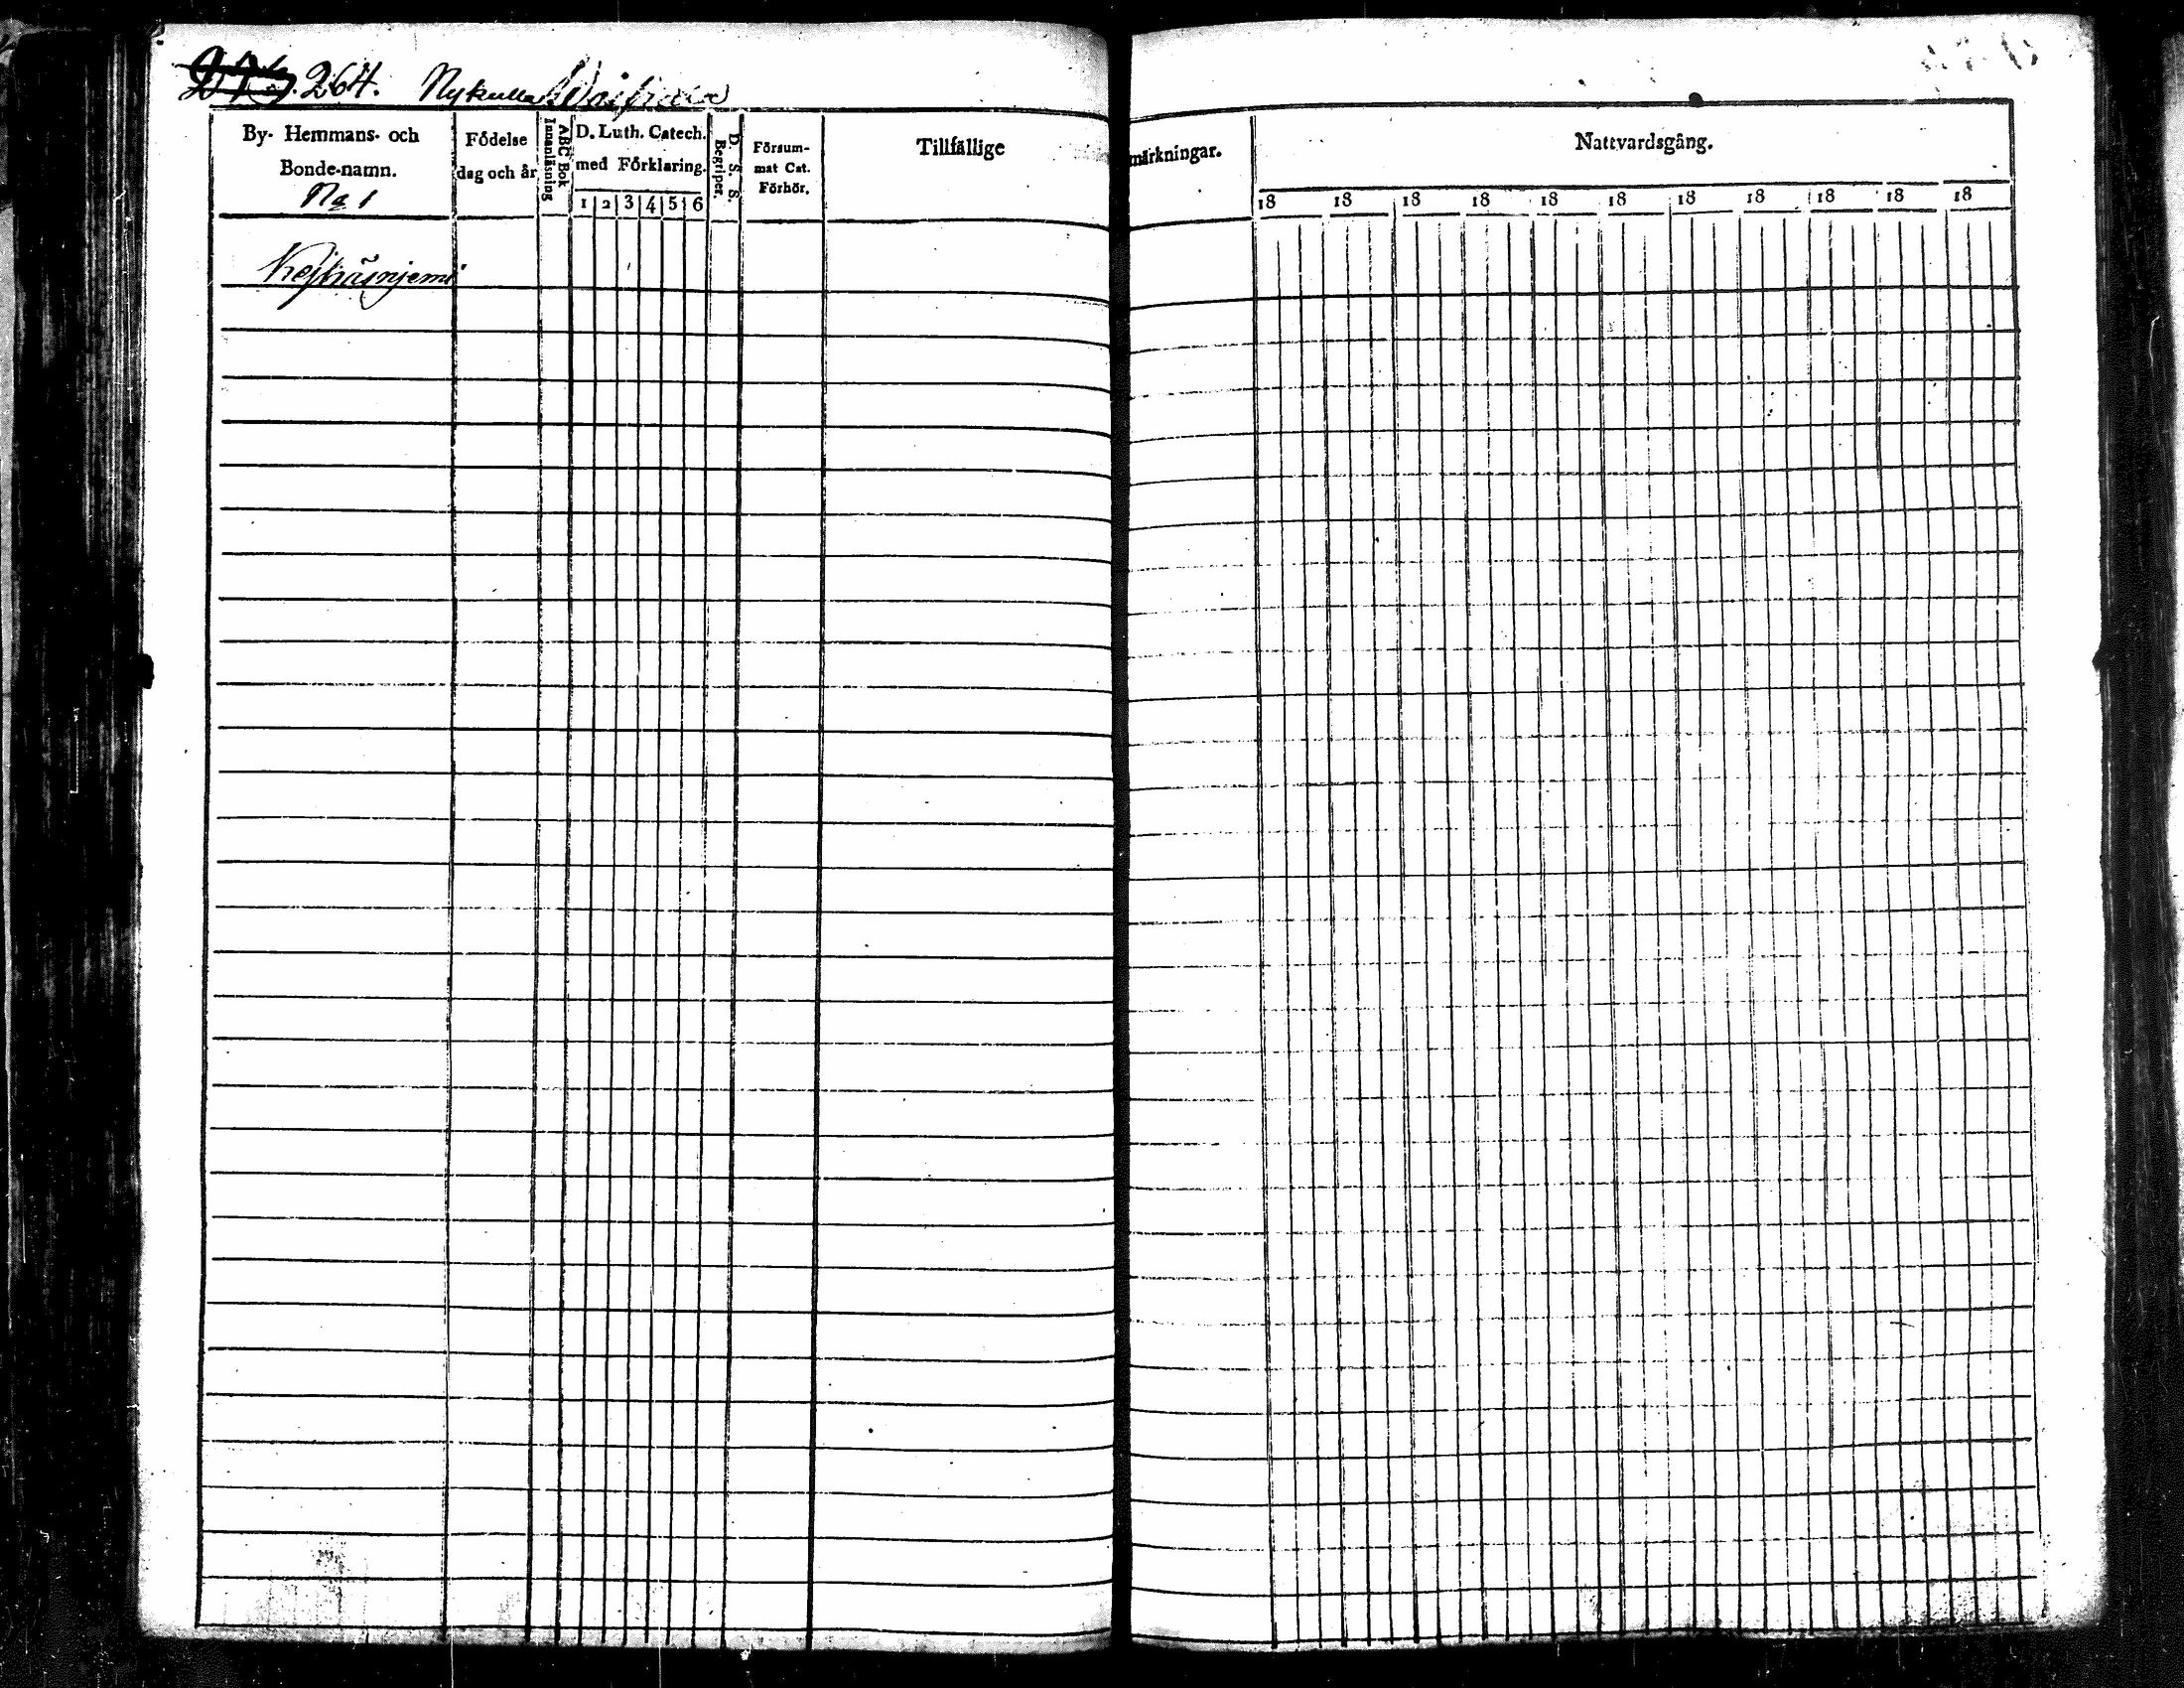 264. Nykulla
By- Hemmans- och
Bonde-namn.
No 1
Födelse
dag och år
ABC Bok
Innanläsning
D. Luth. Catech.
med Förklaring.
1 2 3 4 5 6
D. S. S.
Begriper.
Försum-
mat Cat.
Förhör.
Tillfällige
märkningar.
Nattvardsgång.
18 18 18 18 18 18 18 18 18 18 18